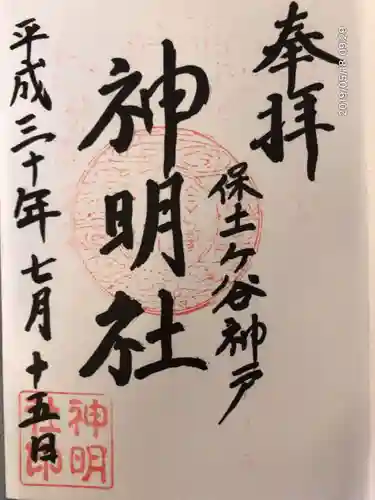 奉拝
保土ヶ谷神戸
神明社
平成三十年七月十五日
神明
社印